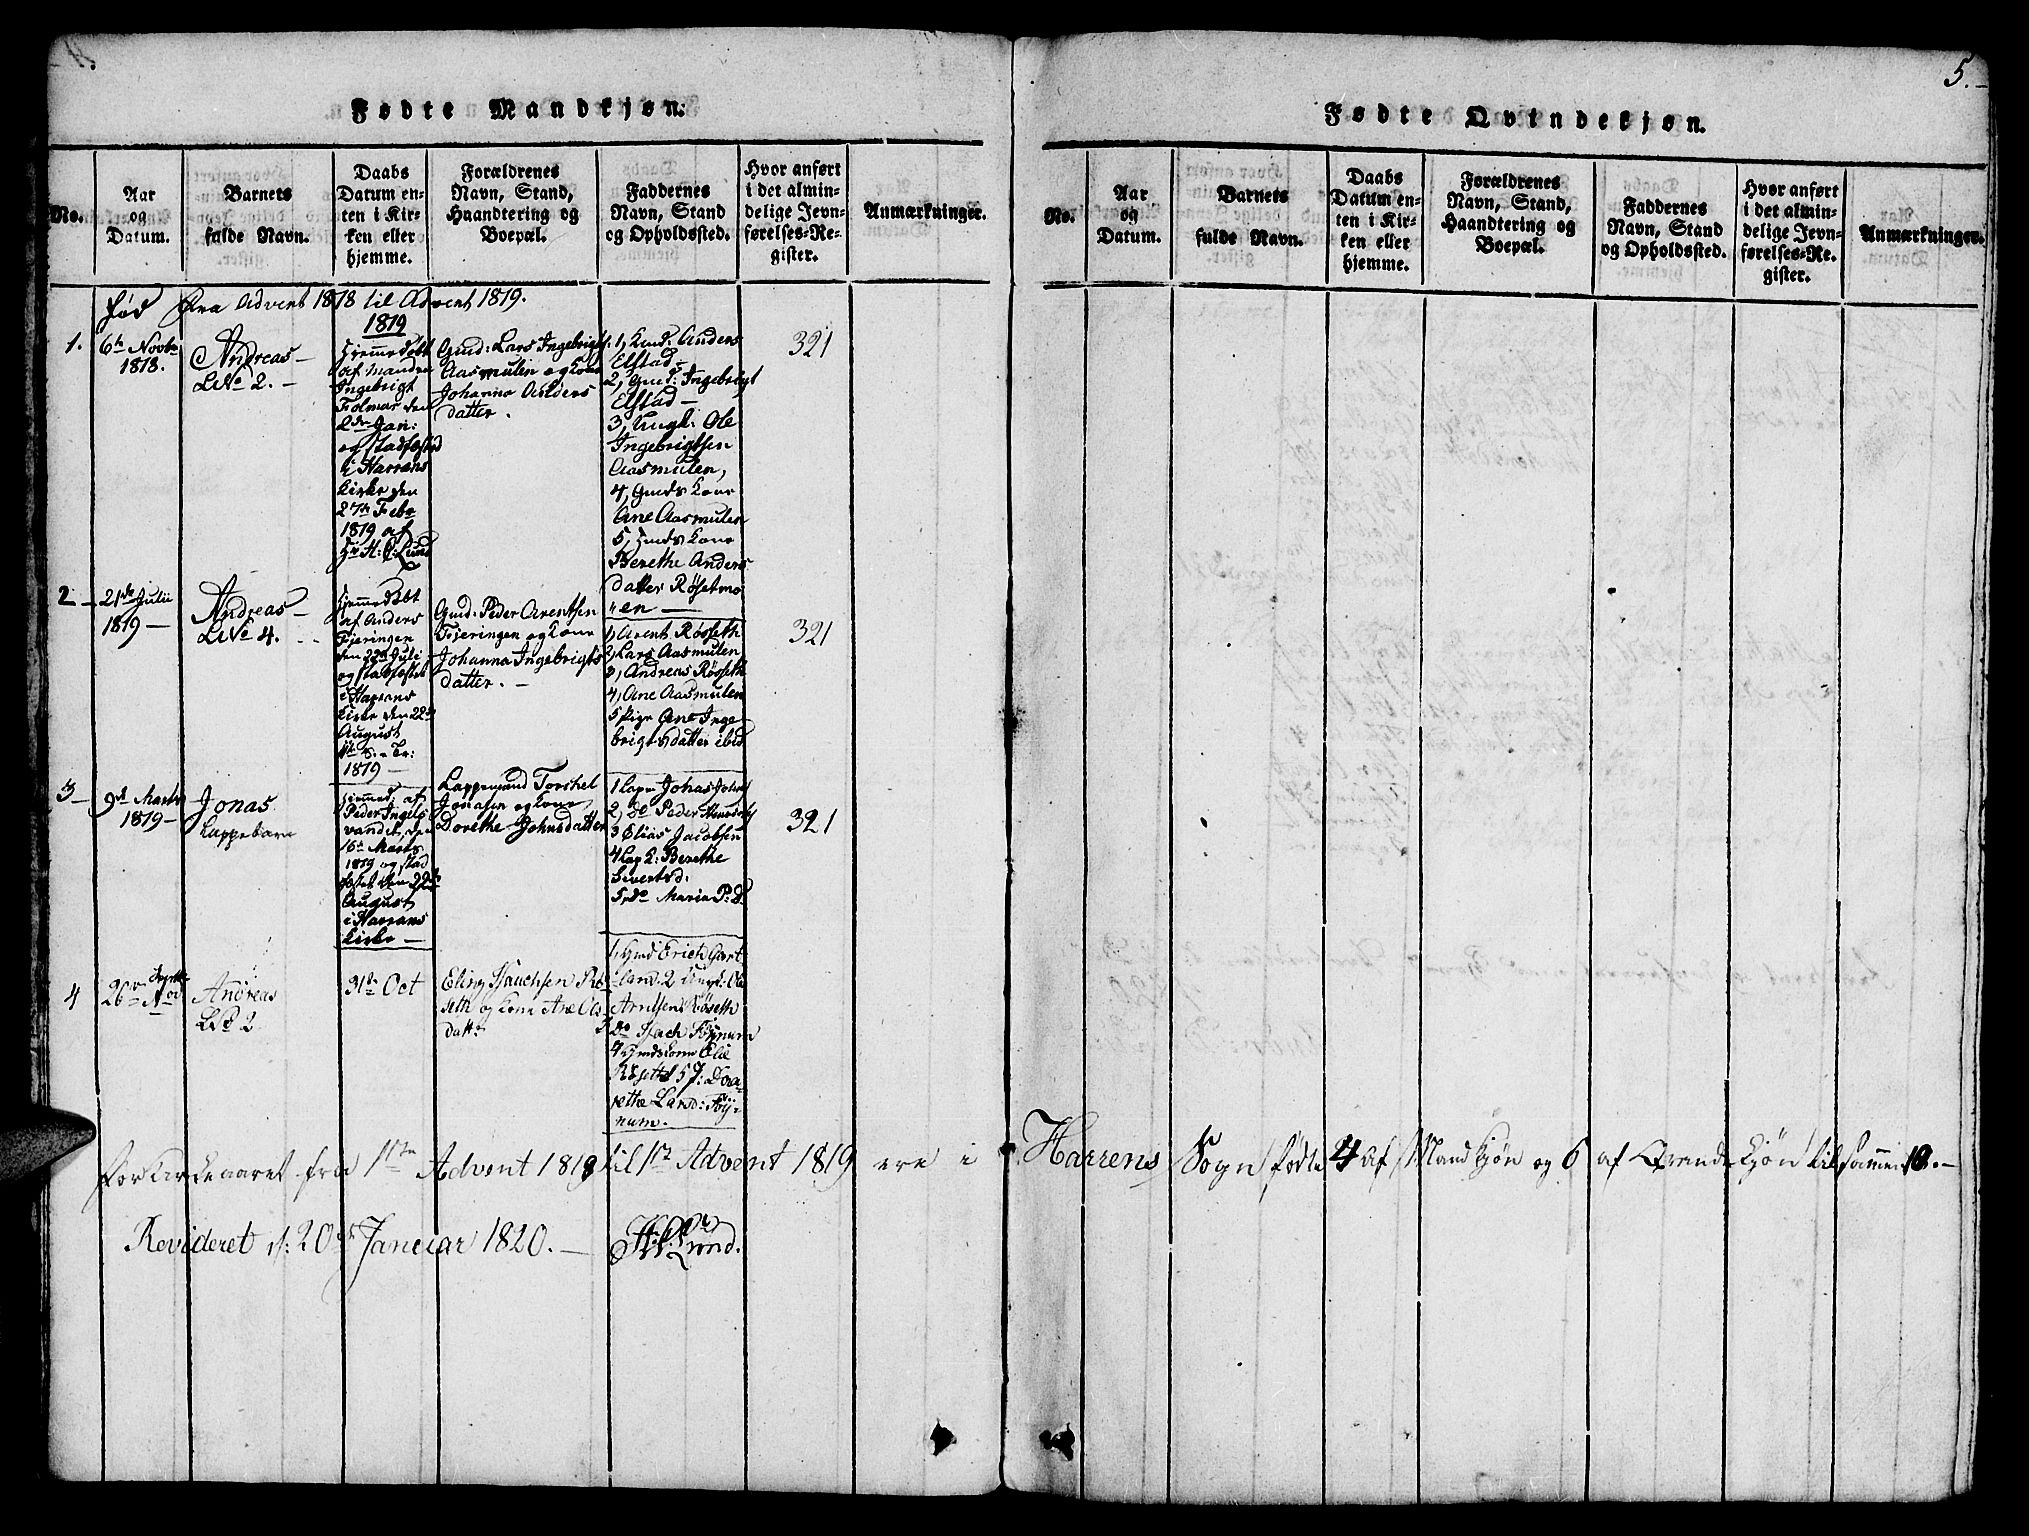 4.
Fødte Mandkjøn.
No.
Aar
og
Datum.
Barnets
fulde Navn.
Daabs
Datum en-
ten i Kir-
ken eller
hjemme.
Forældrenes
Navn, Stand,
Haandtering og
Boepæl.
Faddernes
Navn, Stand
og Opholdssted.
Hvor anført
i det almin-
delige Jevn-
førelses-Re-
gister.
Anmærkninger.
Fød Fra Advent 1818 til Advent 1819.
1.
6te Novbr
1818.
Andreas —
LNo 2. —
1819
Hjemmedøbt
af
Ingebrigt
Folmer den
2den Jan:
og stadfæsted
i Harrans
Kirke den
27de Febr
1819 af
Hr H: P: Lund
Gmd: Lars Ingebrigts:
Aasmulen og Kone
Johanna Anders
datter.
1, Gmd: Anders
Elstad —
2, Gmd: Ingebrigt
Elstad —
3, Ungk: Ole
Ingebrigtsen
Aasmulen,
4, Gmds Kone
Ane Aasmulen
5, Gmds Kone
Berethe Anders
datter Røsetmo
en —
321
2 —
21de Julii
1819 —
Andreas —
LNo 4.
Hjemmedøbt
af Anders
Fjeringen
den 22de Juli
og stadfæstet
i Harrans
Kirke den 22de
August
1819 —
Gmd: Peder Arentsen
Fjeringen og Kone
Johanna Ingebrigts
datter. —
1, Arent Røsseth
2, Lars Aasmulen
3, Andreas Røsseth
4, Ane Aasmulen
5 Pige Ane Inge
brigtsdatter ibid
321
3 —
9de Marts
1819 —
Jonas
Lappebarn
Hjemmed: af
Peder Ingels
vandet, den
16de Marts
1819 og stad
fæstet den 22de
August
i Harrans
Kirke —
Lappemand Torchel
Jonasen og Kone
Dorethe Johnsdatter
1 Lap: Johas
2, Do Peder
3 Elias Jacobsen
4 Lap K: Berethe
Sivertsd:
5, do Maria P: D
321
4
26de
Andreas
LNo 2
31te Oct
Eling Hauchsen Rø
seth og Kone Ane Ols
datt:
1, Gmd Erich Gart
land 2 Ungk: Ole
Arntsen Røseth
3 Do Hach Føynum
4 Gmdskone Elie
Røseth 5 P: Dor
rethe Larsd: Føy-
num.
For Kirkeaaret fra 1ste Advent 1818 til 1ste Advent 1819 ere i
Revideret d: 20de Januar 1820. — H. P. Lund.
5. —
Fødte Qvindekjøn.
No.
Aar
og
Datum.
Barnets
fulde Navn.
Daabs
Datum en-
ten i Kir-
ken eller
hjemme.
Forældrenes
Navn, Stand,
Haandtering og
Boepæl.
Faddernes
Navn, Stand
og Opholdssted.
Hvor anført
i det almin-
delige Jevn-
førelses-Re-
gister.
Anmærkninger.
Harrens Sogn fødte 4 af Mandkjøn og 6 af Qvindekjøn tilsammen 10. —